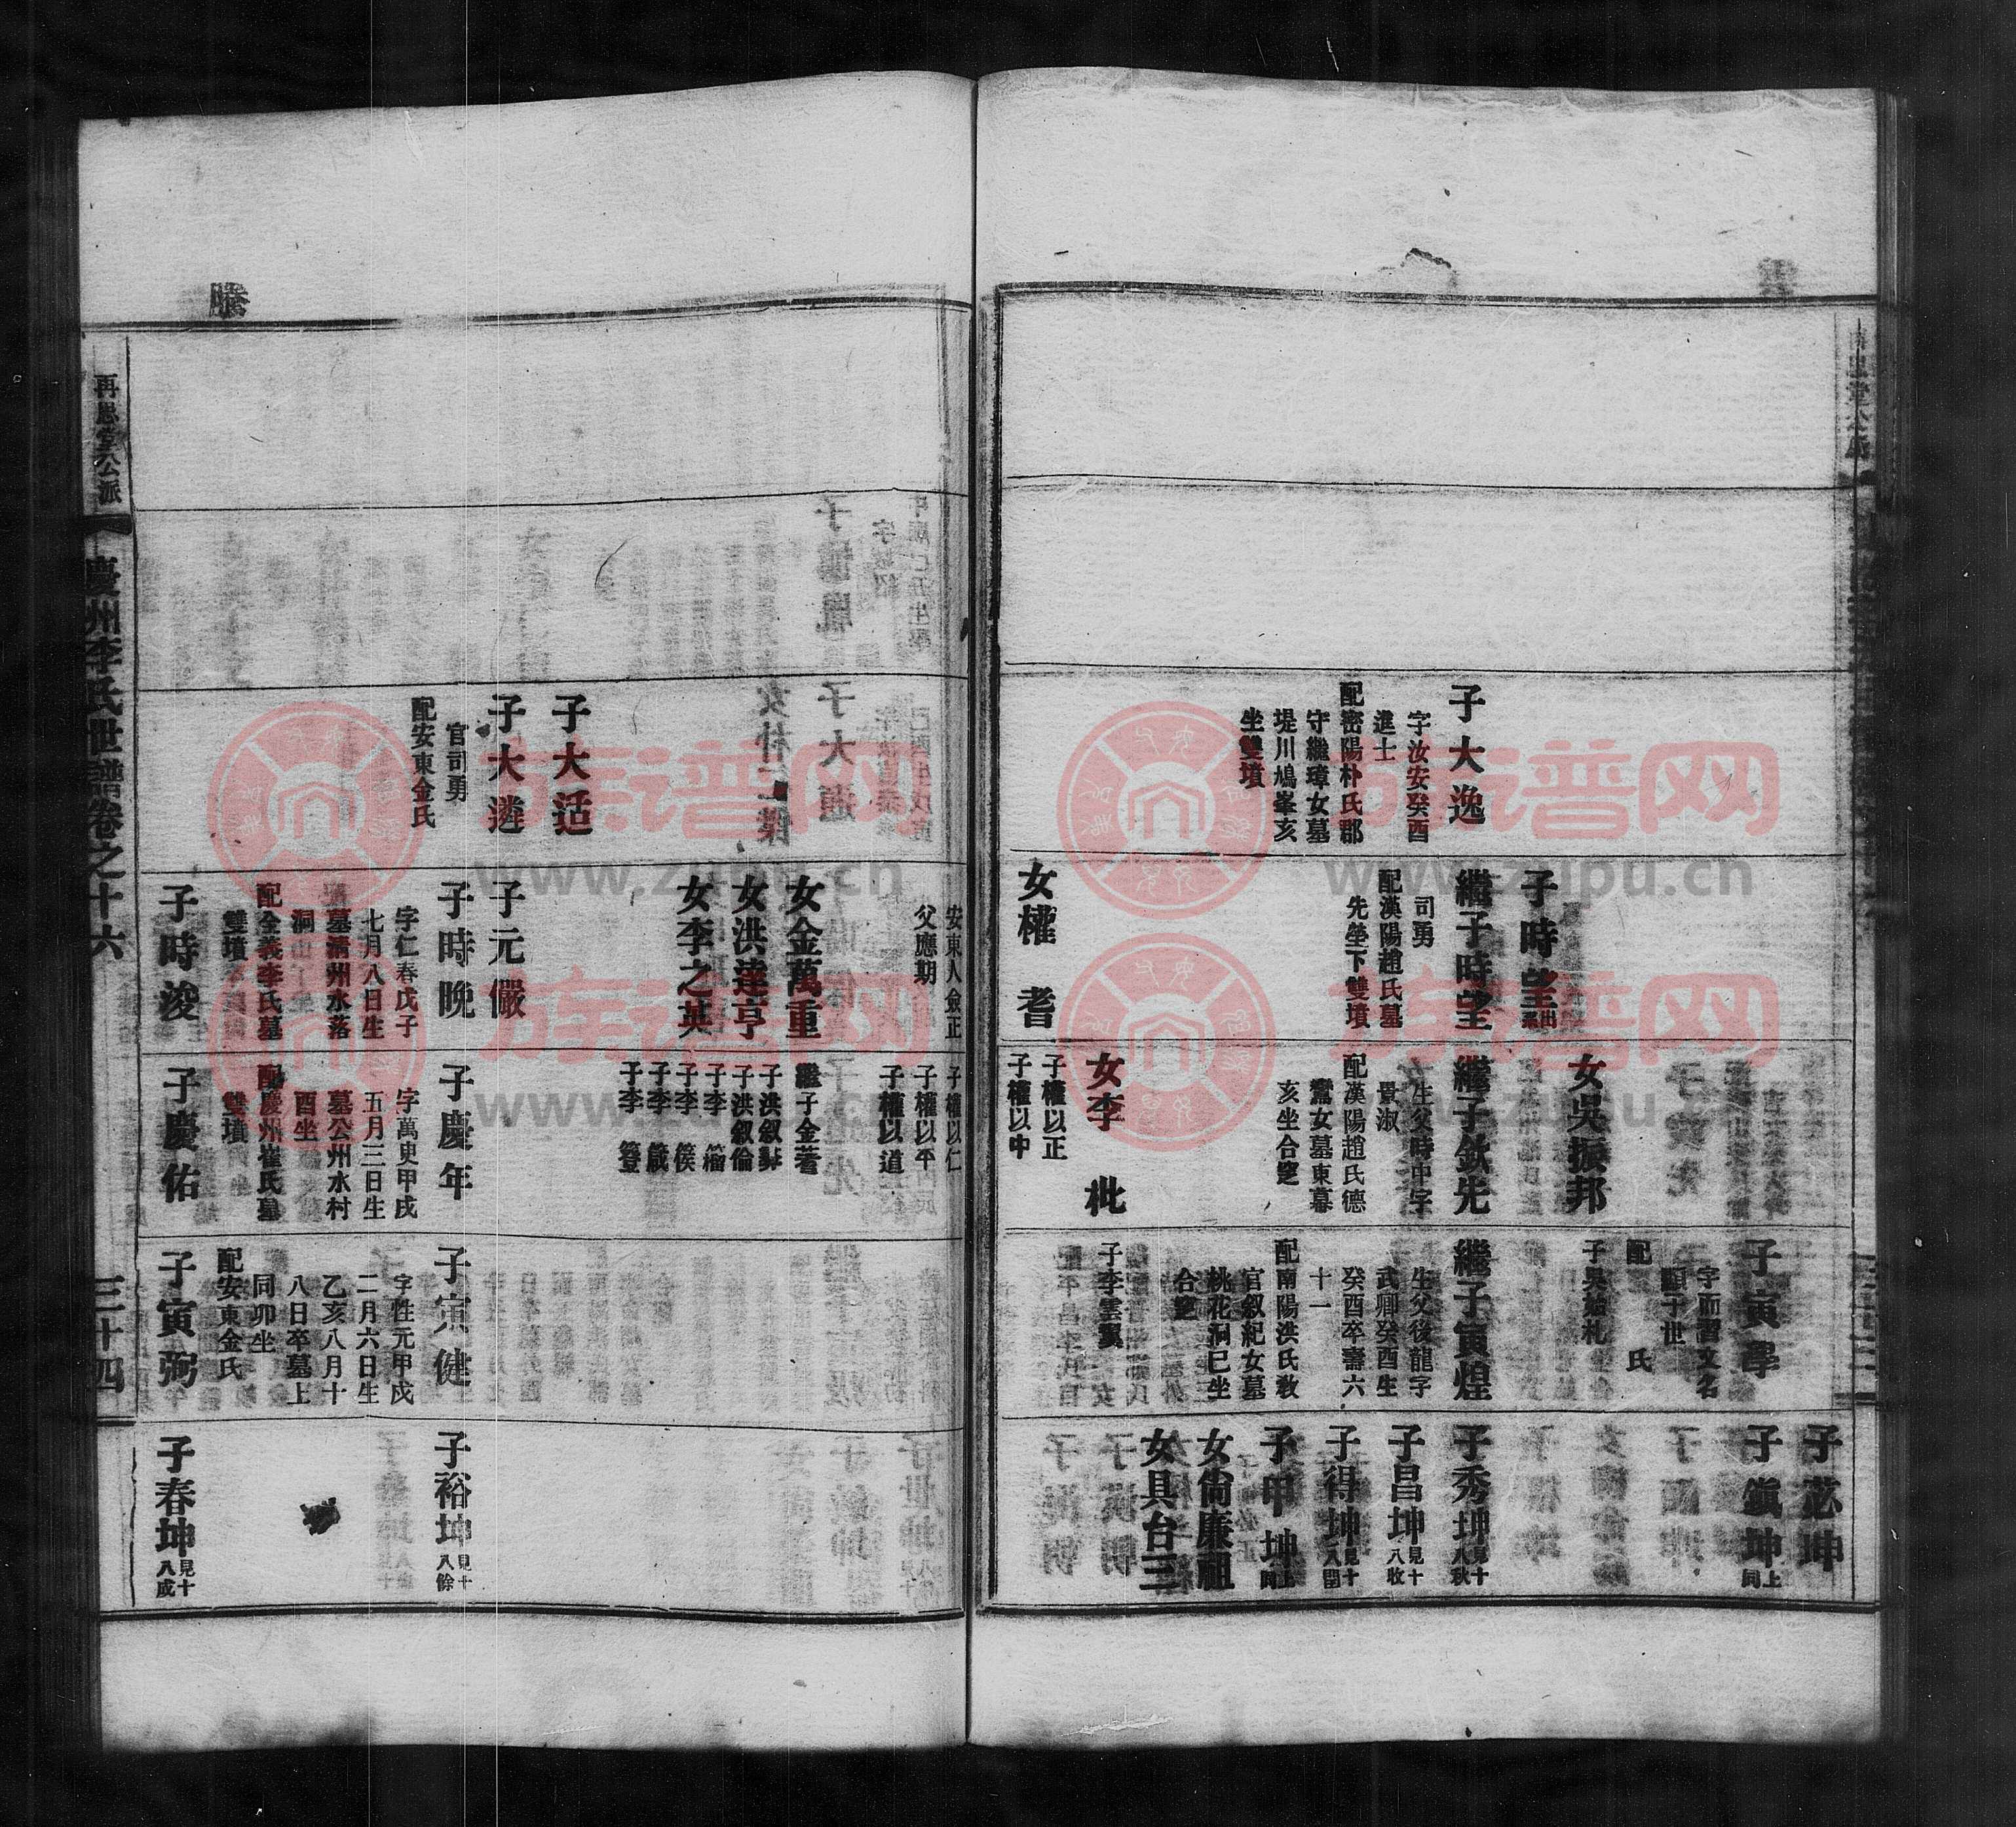 子大逸
字汝安癸酉
進士
配密陽朴氏郡
守繼璋女墓
堤川鳩峯亥
坐雙墳
子時望出系
繼子時望
司勇
配漢陽趙氏墓
先塋下雙墳
女權耆
女吳振邦
繼子欽先
生父時中字
景淑
配漢陽趙氏德
鸞女墓東幕
亥坐合窆
女李枇
子權以正
子權以中
子寅學
字而習文名
顯十世
配 氏
子吳始札
繼子寅煌
生父後龍字
武卿癸酉生
癸酉卒壽六
十一
配南陽洪氏教
官叙紀女墓
桃花洞巳坐
合窆
子李雲翼
子苾坤
子鎭坤上同
子秀坤見十八秋
子昌坤見十八收
子得坤見十八閏
子甲坤上同
女尙廉祖
女具台三
騰
再思堂公派
慶州李氏世譜卷之十六
三十四
子大适
子大遴
官司勇
配安東金氏
安東人僉正
父應期
女金萬重
女洪達亨
女李之英
子元儼
子時晩
字仁春戊子
七月八日生
墓淸州水落
洞
配全義李氏墓
雙墳
子時浚
子權以仁
子權以平
子權以道
繼子金著
子洪叙
子洪叙倫
子李榴
子李篌
子李箴
子李簦
子慶年
字萬叟甲戌
五月三日生
墓公州水村
酉坐
配慶州崔氏墓
雙墳
子慶佑
子寅健
字性元甲戌
二月六日生
乙亥八月十
八日卒墓上
同卯坐
配安東金氏
子寅弼
子裕坤見十八餘
子春坤見十八成
族谱网
www.zupu.cn
族谱网
www.zupu.cn
族谱网
www.zupu.cn
族谱网
www.zupu.cn